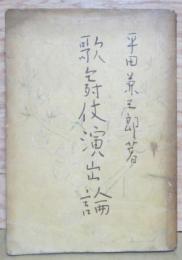 平田兼三郎著
歌舞伎演出論